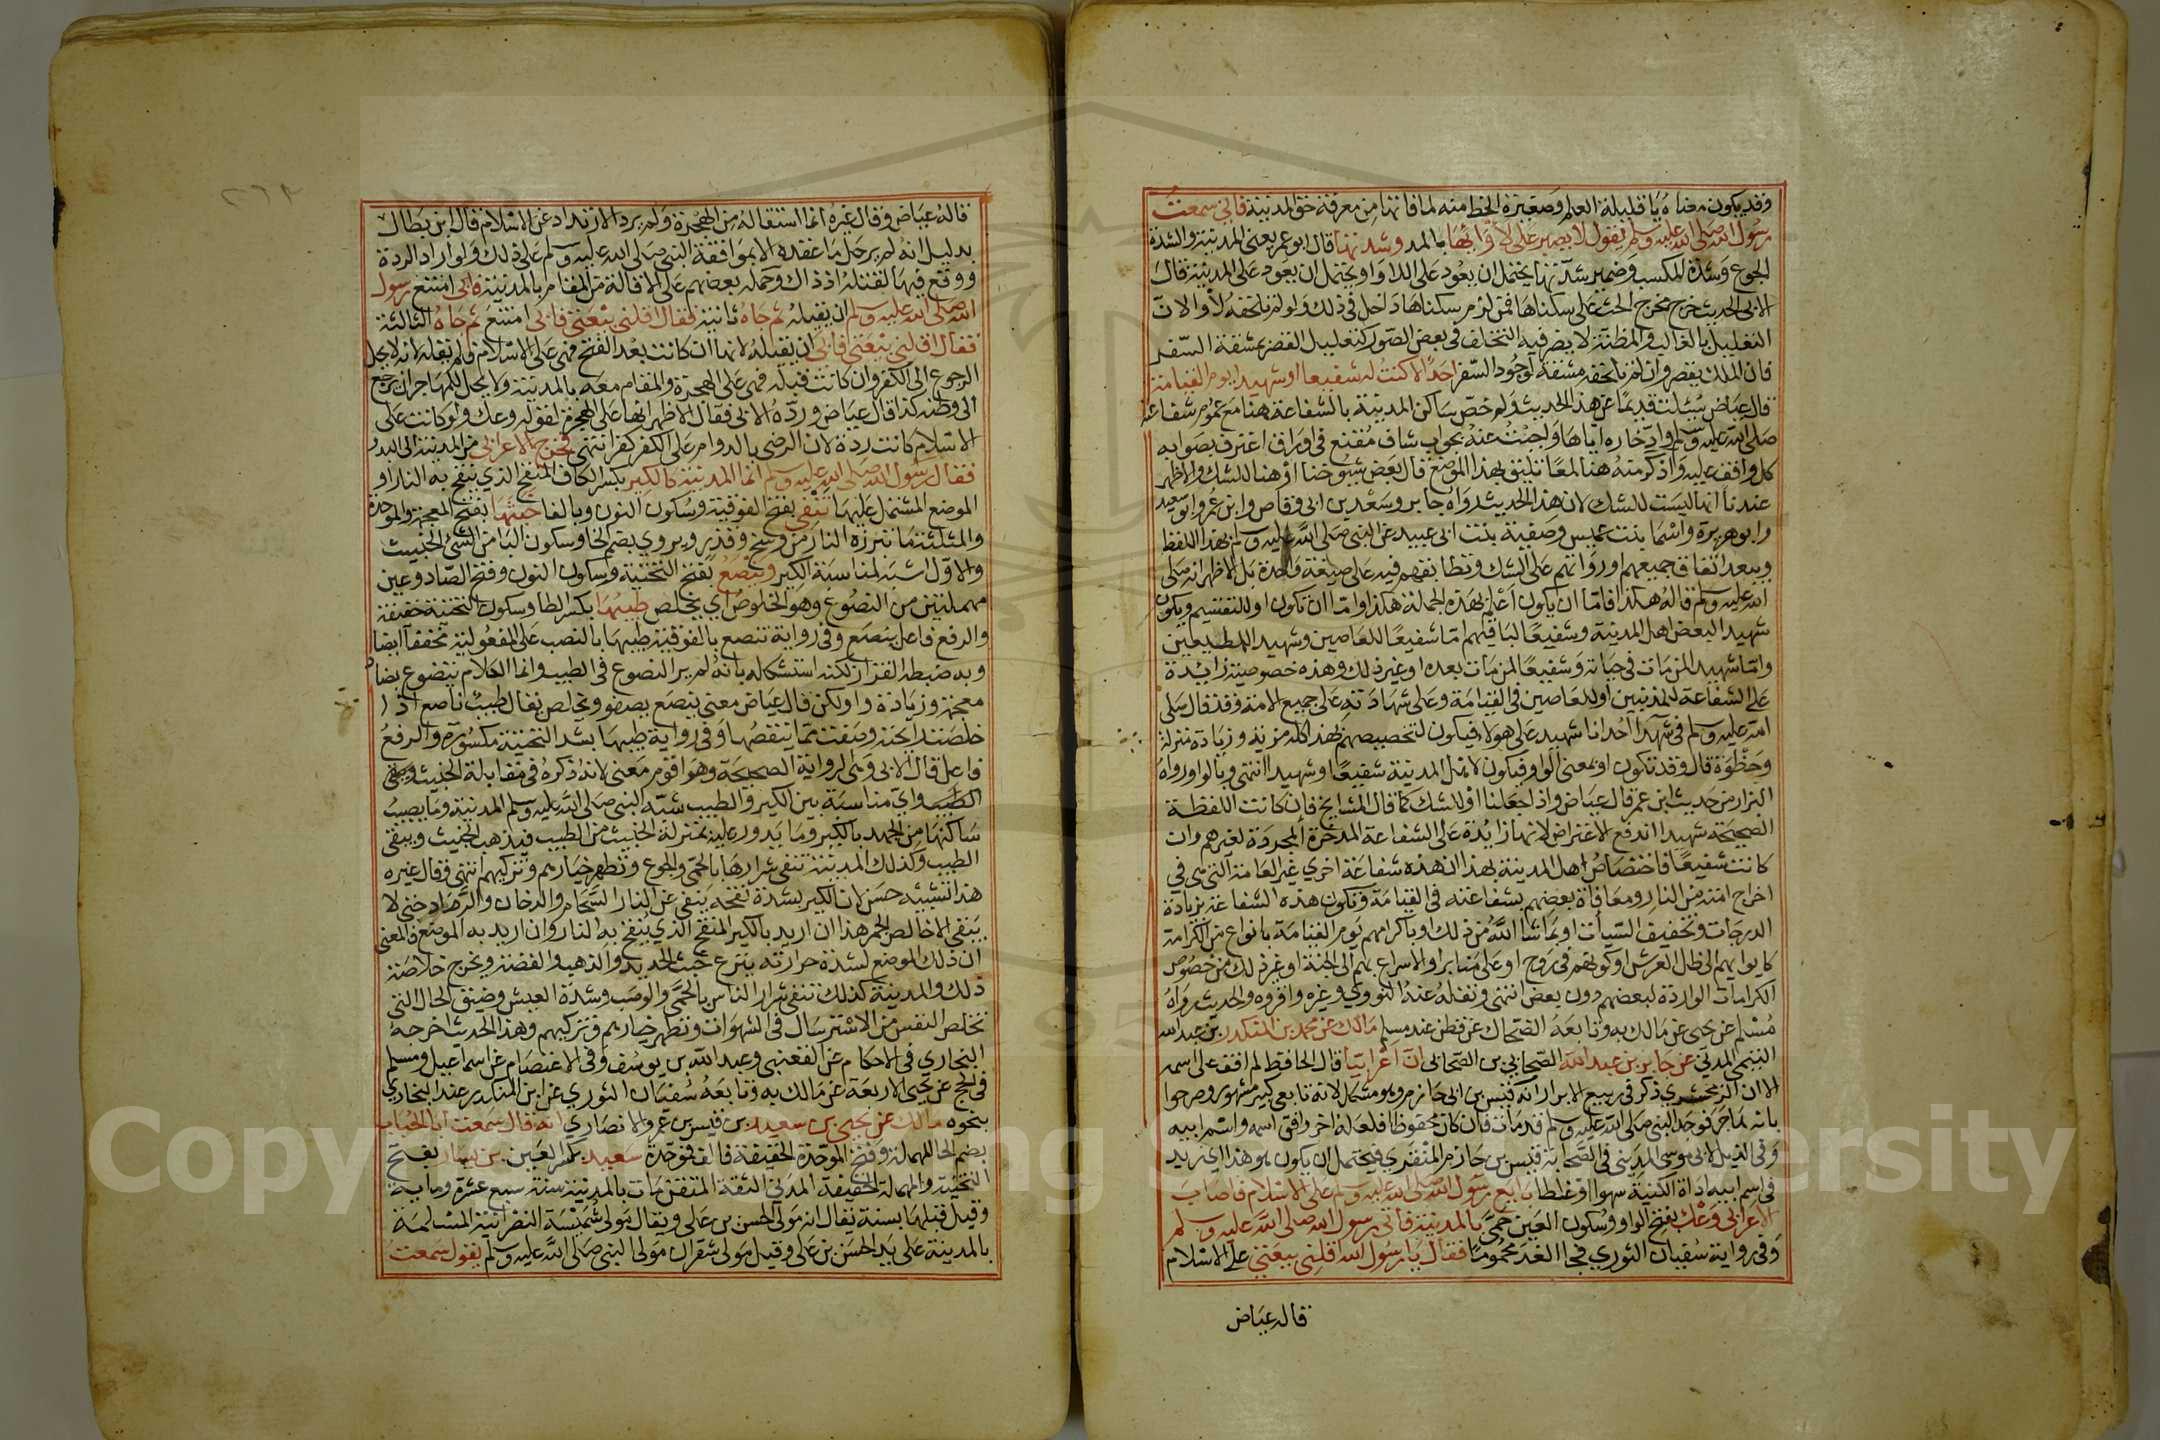 وقد يكون معناه يا قليلة العلم وصغيرة الحظ منه لما فاتها من معرفة حق المدينة فاني سمعت
رسول الله صلى الله عليه وسلم يقول لا يصبر على لأوائها بالمد وشدتها قال ابو عمر يعني المدينة والشدة
الجوع وشدة المكسب وضمير شدتها يحتمل ان يعود على اللاوا ويحتمل ان يعود على المدينة قال
الابي الحديث خرج مخرج الحث على سكناها فمن لزم سكناها داخل في ذلك ولو لم تلحقه لأوا لان
التعليل بالغالب والمظنة لا يضر فيه التخلف في بعض الصور كتعليل القصر بمشقة السفر
فان الملك يقصر وان لم تلحقه مشقة لوجود السفر احد الا كنت له شفيعا او شهيدا يوم القيامة
قال عياض سئلت قديما عن هذا الحديث ولم خص ساكن المدينة بالشفاعة هنا مع عموم شفاعته
صلى الله عليه وسلم وادخاره اياها واجبت عنه بجواب شاف مقنع في اوراق اعترف بصوابه
كل واقف عليه واذكر منه هنا لمعا تليق بهذا الموضع قال بعض شيوخنا او هنا للشك والاظهر
عندنا انها ليست للشك لان هذا الحديث رواه جابر وسعد بن ابي وقاص وابن عمر وابو سعيد
وابو هريرة واسما بنت عميس وصفية بنت ابي عبيد عن النبي صلى الله عليه وسلم بهذا اللفظ
ويبعد اتفاق جميعهم او رواتهم على الشك وتطابقهم فيه على صيغة واحدة بل الاظهر انه صلى
الله عليه وسلم قاله هكذا فاما ان يكون اعلم بهذه الجملة هكذا واما ان تكون او للتقسيم ويكون
شهيدا لبعض اهل المدينة وشفيعا لباقيهم اما شفيعا للعاصين وشهيدا للمطيعين
واما شهيدا لمن مات في حياته وشفيعا لمن مات بعده او غير ذلك وهذه خصوصية زايدة
على الشفاعة للمذنبين او للعاصين في القيامة وعلى شهادته على جميع الامة وقد قال صلى
الله عليه وسلم في شهدا احد انا شهيد على هولا فيكون لتخصيصهم بهذا كله مزيد وزيادة منزلة
وحظوة قال وقد تكون او بمعنى الواو فيكون لاهل المدينة شفيعا وشهيدا انتهى وبالواو رواه
البزار من حديث ابن عمر قال عياض واذا جعلنا او للشك كما قال المشايخ فان كانت اللفظة
الصحيحة شهيدا اندفع الاعتراض لانها زايدة على الشفاعة المدخرة المجردة لغيرهم وان
كانت شفيعا فاختصاص اهل المدينة بهذا ان هذه شفاعة اخرى غير العامة التي هي في
اخراج امته من النار ومعافاة بعضهم بشفاعته في القيامة وتكون هذه الشفاعة بزيادة
الدرجات وتخفيف السيات او بما شا الله من ذلك او باكرامهم يوم القيامة بانواع من الكرامة
كايوايهم الى ظل العرش او كونهم في روح او على منابر او الاسراع بهم الى الجنة او غير ذلك من خصوص
الكرامات الواردة لبعضهم دون بعض انتهى ونقله عنه النووي وغيره واقروه والحديث رواه
مسلم عن يحيى عن مالك به وتابعه الضحاك عن قطن عند مسلم مالك عن محمد بن المنكدر بن عبد الله
التيمي المدني عن جابر بن عبد الله الصحابي بن الصحابي ان اعرابيا قال الحافظ لم اقف على اسمه
الا ان الزمخشري ذكر في ربيع الابرار انه قيس بن ابي حازم وهو مشكل لانه تابعي كبير مشهور صرحوا
بانه هاجر فوجد النبي صلى الله عليه وسلم قد مات فان كان محفوظا فلعله اخر وافق اسمه واسم ابيه
وفي الذيل لابي موسى المديني في الصحابة قيس بن حازم المنقري فيحتمل ان يكون هو هذا اي زيد
في اسم ابيه اداة الكنية سهوا او غلطا بايع رسول الله صلى الله عليه وسلم على الاسلام فاصاب
الاعرابي وعك بفتح الواو وسكون العين حمى بالمدينة فاتى رسول الله صلى الله عليه وسلم
وفي رواية سفيان الثوري فجا الغد محموما فقال يا رسول الله اقلني بيعتي على الاسلام
قاله عياض
قاله عياض وقال غيره انما استقاله من الهجرة ولم يرد الارتداد عن الاسلام قال ابن بطال
بدليل انه لم يرد حل ما عقده الا بموافقة النبي صلى الله عليه وسلم على ذلك ولو اراد الردة
ووقع فيها لقتله اذ ذاك وحمله بعضهم على الاقالة من المقام بالمدينة فابى امتنع رسول
الله صلى الله عليه وسلم ان يقيله ثم جاه ثانية فقال اقلني بيعتي فابى امتنع ثم جاه الثالثة
فقال اقلني بيعتي فابى ان يقيله لانها ان كانت بعد الفتح فهي على الاسلام فلم يقله لانه لا يحل
الرجوع الى الكفر وان كانت قبله فهي على الهجرة والمقام معه بالمدينة ولا يحل للمهاجر ان يرجع
الى وطنه كذا قال عياض ورده الابي فقال الاظهر انها على الهجرة لقوله وعك ولو كانت على
الاسلام كانت ردة لان الرضى بالدوام على الكفر كفر انتهى فخرج الاعرابي من المدينة الى البدو
فقال رسول الله صلى الله عليه وسلم انما المدينة كالكير بكسر الكاف المنفخ الذي ينفخ به النار او
الموضع المشتمل عليها تنفي بفتح الفوقية وسكون النون وبالفا خبثها بفتح المعجمة والموحدة
والمثلثة ما تبرزه النار من وسخ وقذر ويروي بضم الخا وسكون البا من الشي الخبيث
والاول اشبه لمناسبة الكير وينصع بفتح التحتية وسكون النون وفتح الصاد وعين
مهملتين من النصوع وهو الخلوص اي يخلص طيبها بكسر الطا وسكون التحتية خفيفة
والرفع فاعل ينصع وفي رواية تنصع بالفوقية طيبها بالنصب على المفعولية مخففا ايضا
وبه ضبطه القزاز لكنه استشكله بانه لم ير النصوع في الطيب وانما الكلام يتضوع بضاد
معجمة وزيادة واو لكن قال عياض معنى ينصع يصفو ويخلص يقال طيب ناصع اذا
خلصت رايحته وصفت مما ينقصها وفي رواية طيبها بشد التحتية مكسورة والرفع
فاعل قال الابي وهي الرواية الصحيحة وهو اقوم معنى لانه ذكره في مقابلة الخبيث ويبقى
الطيب واي مناسبة بين الكير والطيب شبه النبي صلى الله عليه وسلم المدينة وما يصيب
ساكنها من الجهد بالكير وما يدور عليه بمنزلة الخبيث من الطيب فيذهب الخبيث ويبقى
الطيب وكذلك المدينة تنفي شرارها بالحمى والجوع وتطهر خيارهم وتزكيهم انتهى وقال غيره
هذا تشبيه حسن لان الكير بشدة نفخه ينفي عن النار السخام والدخان والرماد حتى لا
يبقى الا خالص الجمر هذا ان اريد بالكير المنفخ الذي ينفخ به النار وان اريد به الموضع فالمعنى
ان ذلك الموضع لشدة حرارته ينزع خبث الحديد والذهب والفضة ويخرج خلاصة
ذلك والمدينة كذلك تنفي شرار الناس بالحمى والوصب وشدة العيش وضيق الحال التي
تخلص النفس من الاسترسال في الشهوات وتطهر خيارهم وتزكيهم وهذا الحديث اخرجه
البخاري في الاحكام عن القعنبي وعبد الله بن يوسف وفي الاعتصام عن اسماعيل ومسلم
في الحج عن يحيى الاربعة عن مالك به وتابعه سفيان الثوري عن ابن المنكدر عند البخاري
بنحوه مالك عن يحيى بن سعيد بن قيس بن عمرو الانصاري انه قال سمعت ابا الحباب
بضم الحا المهملة وفتح الموحدة الخفيفة فالف فموحدة سعيد بكسر العين بن يسار بفتح
التحتية والمهملة الخفيفة المدني الثقة المتقن مات بالمدينة سنة سبع عشرة وماية
وقيل قبلها بسنة يقال انه مولى الحسن بن علي ويقال مولى شميسة النصرانية المسلمة
بالمدينة على يد الحسن بن علي وقيل مولى شقران مولى النبي صلى الله عليه وسلم يقول سمعت